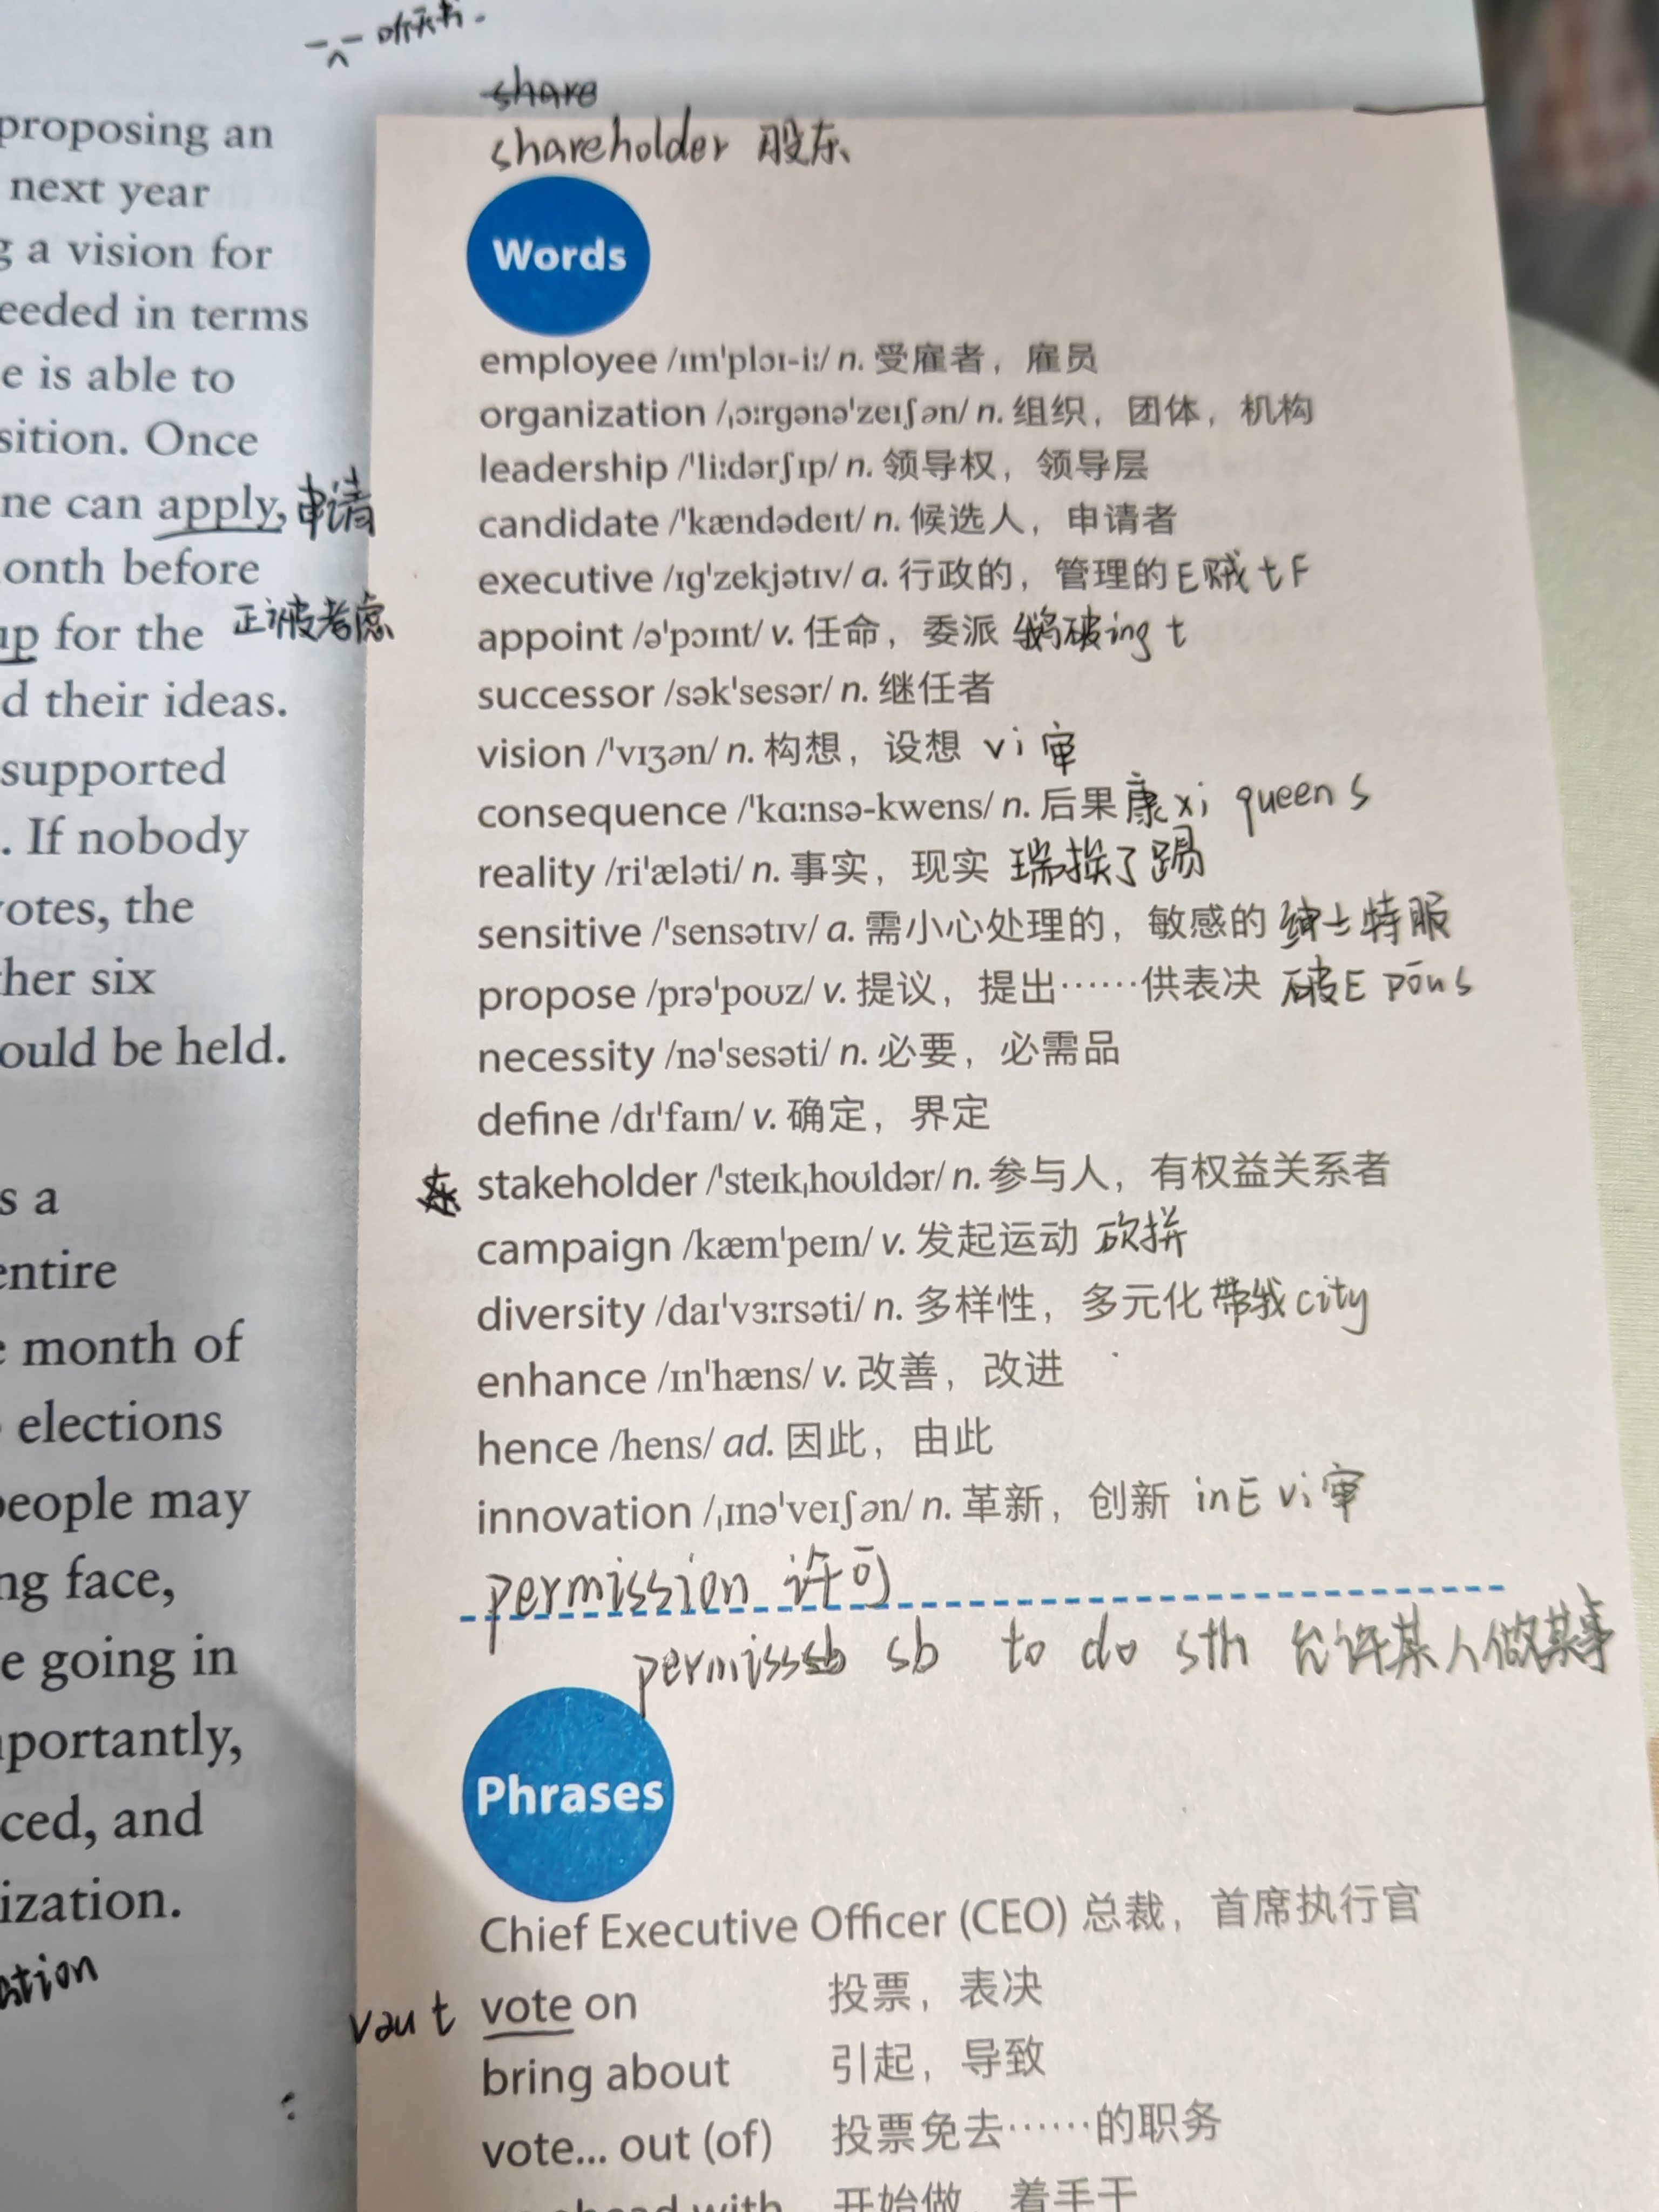 听天书.
proposing an
next year
g a vision for
eeded in terms
e is able to
sition. Once
ne can apply, 申请
onth before
正被考虑
up for the
d their ideas.
supported
. If nobody
votes, the
ther six
ould be held.
s a
entire
e month of
elections
people may
ng face,
e going in
portantly,
ced, and
ization.
ation
share
shareholder 股东
Words
employee /ɪmˈplɔɪ-iː/ n. 受雇者，雇员
organization /ˌɔːrgənəˈzeɪʃən/ n. 组织，团体，机构
leadership /ˈliːdərʃɪp/ n. 领导权，领导层
candidate /ˈkændədeɪt/ n. 候选人，申请者
executive /ɪgˈzekjətɪv/ a. 行政的，管理的 E贼tF
appoint /əˈpɔɪnt/ v. 任命，委派 鹅破ing t
successor /səkˈsesər/ n. 继任者
vision /ˈvɪʒən/ n. 构想，设想 vi审
consequence /ˈkɑːnsə-kwens/ n. 后果 康xi queen s
reality /riˈæləti/ n. 事实，现实 瑞挨了踢
sensitive /ˈsensətɪv/ a. 需小心处理的，敏感的 绅士特服
propose /prəˈpoʊz/ v. 提议，提出……供表决 破E pōu s
necessity /nəˈsesəti/ n. 必要，必需品
define /dɪˈfaɪn/ v. 确定，界定
stakeholder /ˈsteɪkˌhoʊldər/ n. 参与人，有权益关系者
campaign /kæmˈpeɪn/ v. 发起运动 砍拼
diversity /daɪˈvɜːrsəti/ n. 多样性，多元化 带我city
enhance /ɪnˈhæns/ v. 改善，改进
hence /hens/ ad. 因此，由此
innovation /ˌɪnəˈveɪʃən/ n. 革新，创新 inE vi审
permission 许可
permisssb sb to do sth 允许某人做某事
Phrases
Chief Executive Officer (CEO) 总裁，首席执行官
vəu t vote on 投票，表决
bring about 引起，导致
vote... out (of) 投票免去……的职务
ahead with 开始做，着手干